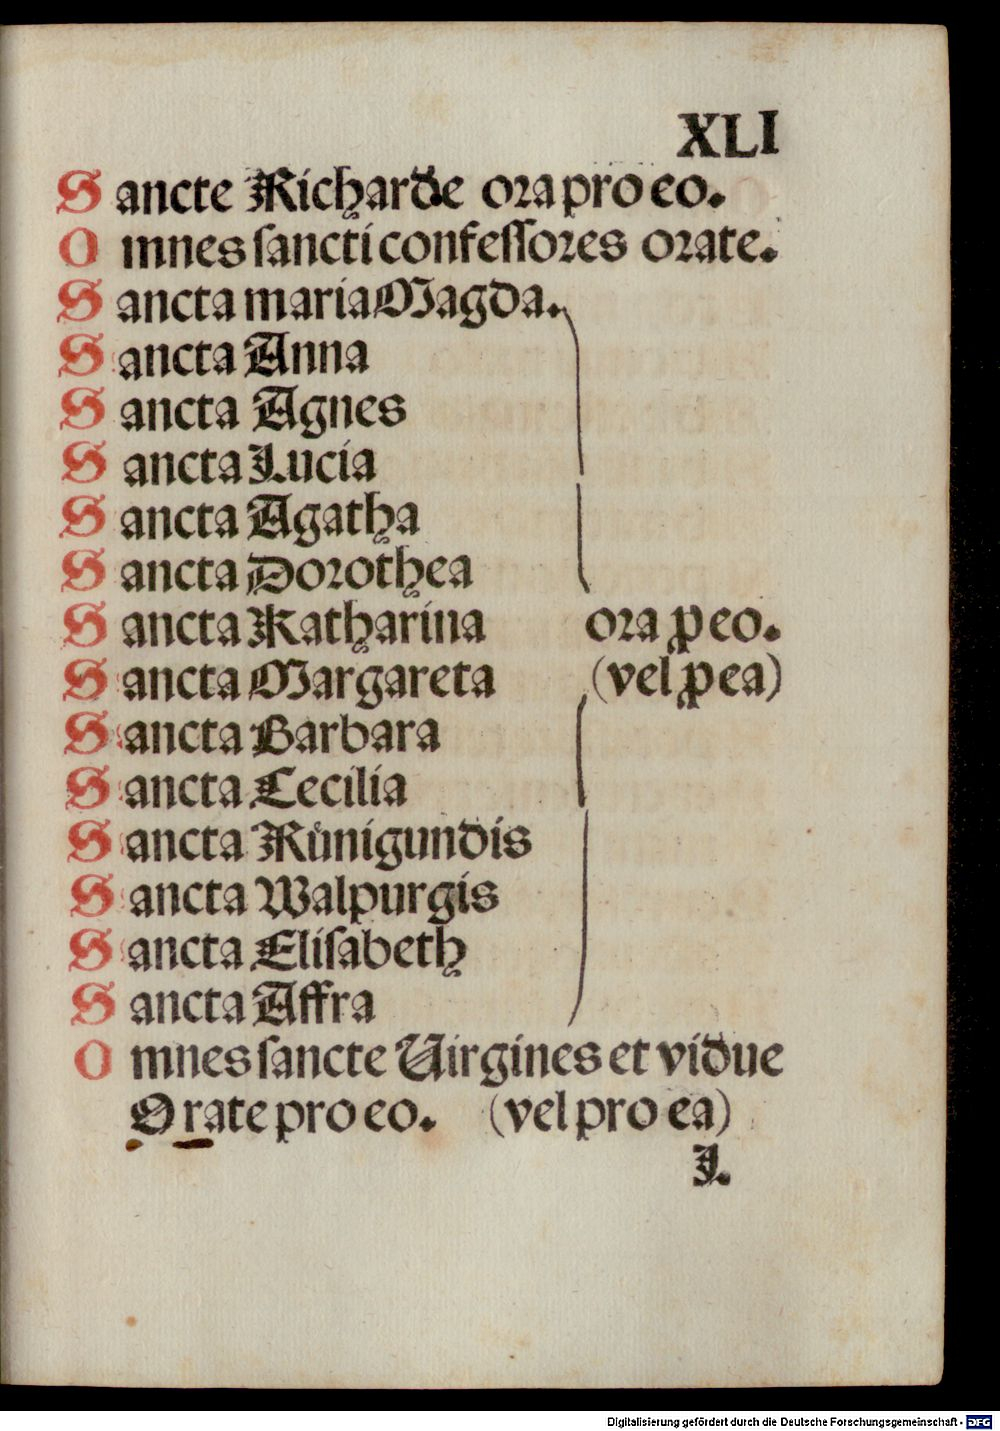 XLI
Sancte Richarde ora pro eo.
Omnes ſancti confeſſores orate.
Sancta maria Magda.
Sancta Anna
Sancta Agnes
Sancta Lucia
Sancta Agatha
Sancta Dorothea
Sancta Katharina ora ꝓ eo.
Sancta Margareta (vel ꝓ ea)
Sancta Barbara
Sancta Cecilia
Sancta Kůnigundis
Sancta Walpurgis
Sancta Eliſabeth
Sancta Affra
Omnes ſancte Uirgines et vidue
Orate pro eo. (vel pro ea)
I.
Digitalisierung gefördert durch die Deutsche Forschungsgemeinschaft - DFG